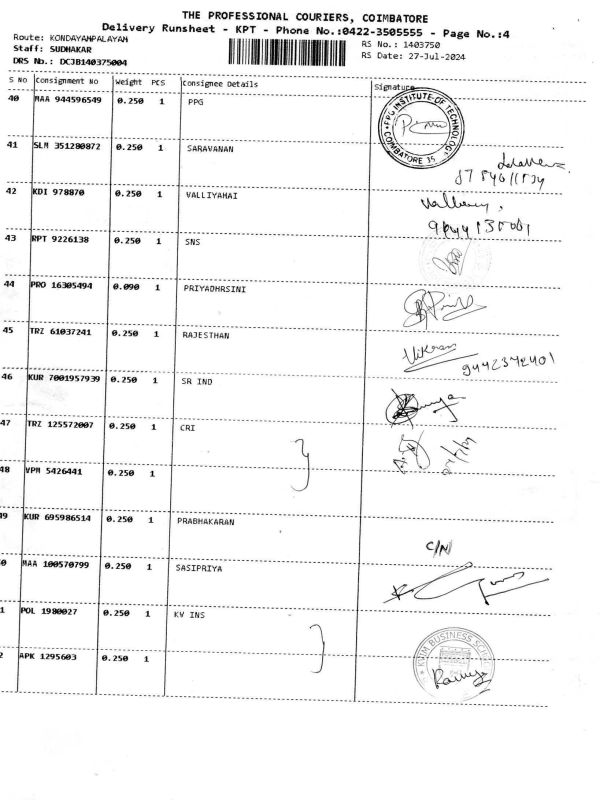 THE PROFESSIONAL COURIERS, COIMBATORE
Delivery Runsheet - KPT - Phone No.:0422-3505555 - Page No.:4
Route: KONDAYAMPALAYAM
Staff: SUDHAKAR
DRS No.: DCJB140375004
RS No.: 1403750
RS Date: 27-Jul-2024
S No Consignment No Weight PCS Consignee Details Signature
40 MAA 944596549 0.250 1 PPG
PPG INSTITUTE OF TECHNOLOGY
COIMBATORE 35
41 SLM 351280872 0.250 1 SARAVANAN
42 KDI 978870 0.250 1 VALLIYAHAI
43 RPT 9226138 0.250 1 SNS
44 PRO 16305494 0.090 1 PRIYADHRSINI
45 TRZ 61037241 0.250 1 RAJESTHAN
Vikram
9442372401
46 KUR 7001957939 0.250 1 SR IND
47 TRZ 125572007 0.250 1 CRI
48 VPM 5426441 0.250 1
49 KUR 695986514 0.250 1 PRABHAKARAN
C/N
0 MAA 100570799 0.250 1 SASIPRIYA
1 POL 1980027 0.250 1 KV INS
2 APK 1295603 0.250 1
BUSINESS
Ramya